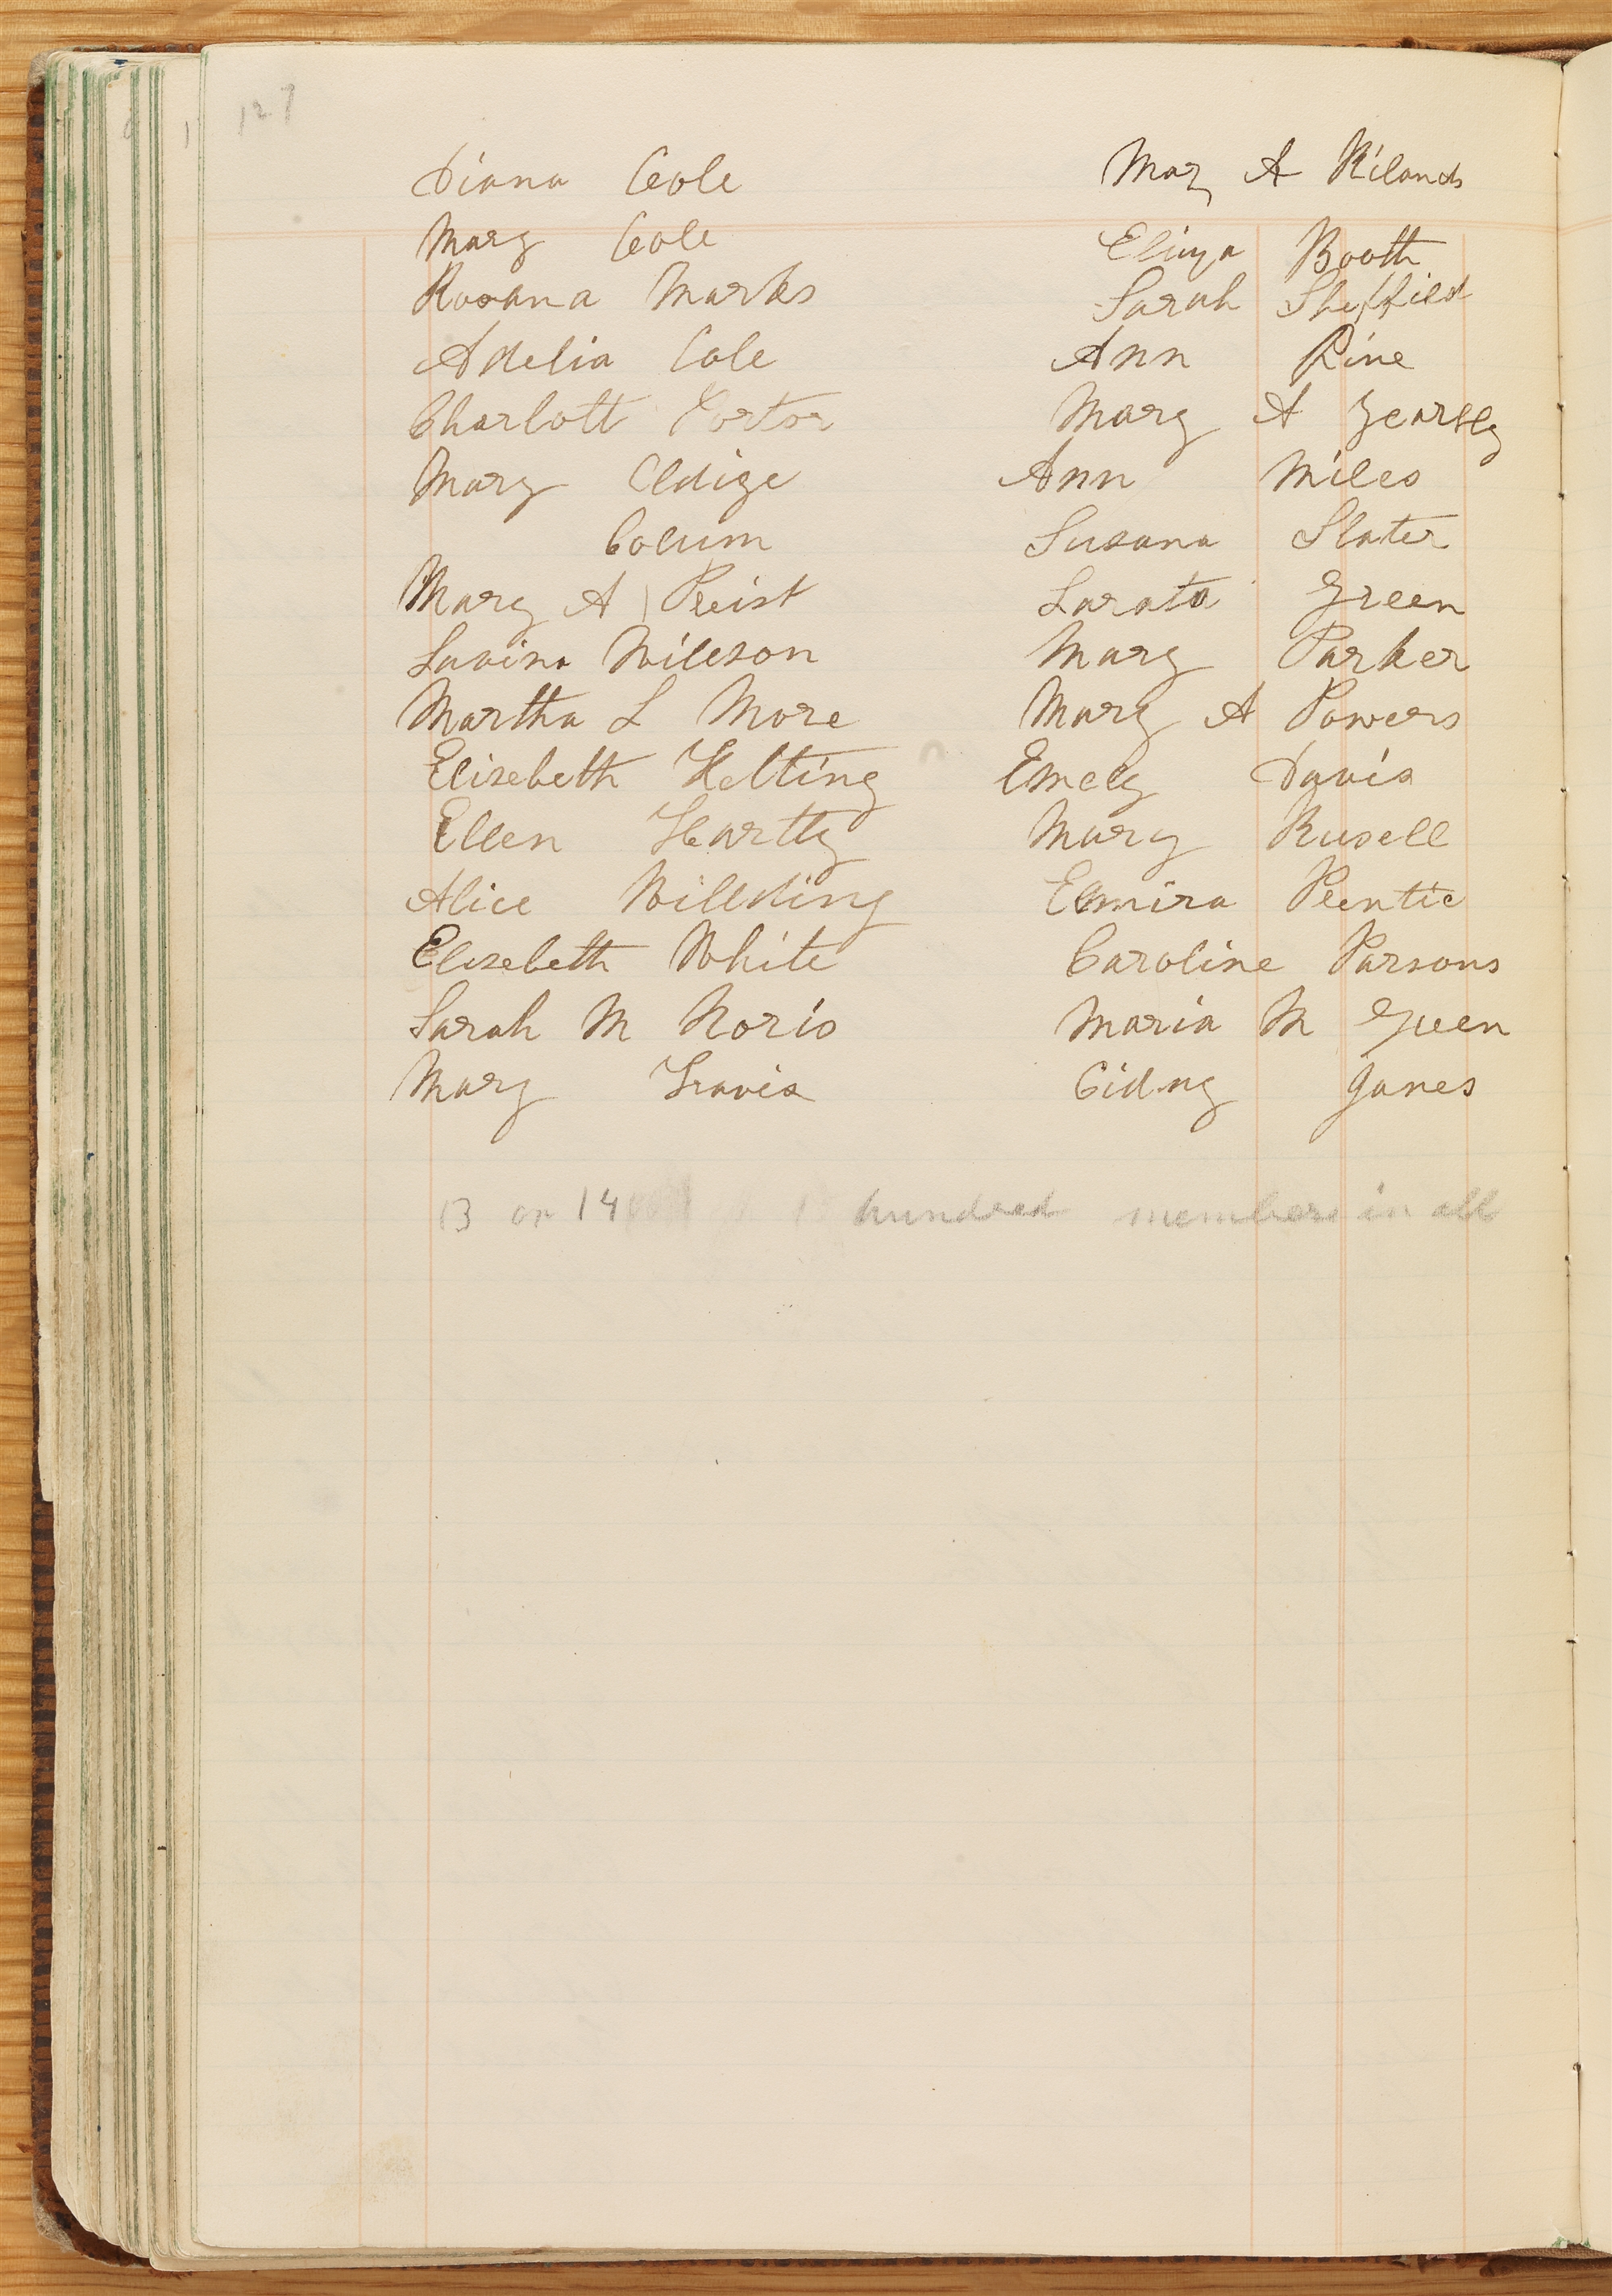 127
Diana Cole
Mary Cole
Rosana Marks
Adelia Cole
Charlott Portor
Mary Aldige
Colum
Mary A Preist
Lavina Willson
Martha L More
Elisebeth Kelting
Ellen Hartly
Alice Willding
Elisebeth White
Sarah M Noris
Mary Travis
Mary A Rilands
Eliza Booth
Sarah Sheffield
Ann Pine
Mary A Yearsly
Ann Miles
Susana Slater
Larata Green
Mary Parker
Mary A Powers
Emely Davis
Mary Rusell
Elmira
Caroline Parsons
Maria M Green
Cidny Janes
13 or 14 hundred members in all